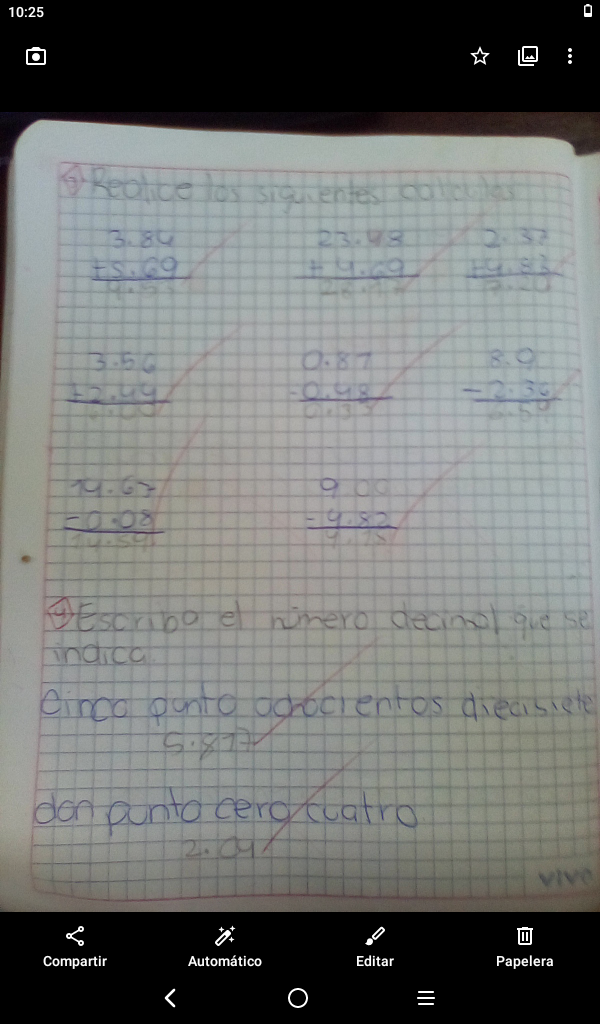 10:25
Realice los siguientes calculos
3.84 23.48 2.37
+5.69 + 4.69 +4.83
9.53 28.17 7.20
3.56 0.87 8.9
+2.44 -0.48 -2.36
6.00 0.39 6.54
14.67 9 00
-0.08 -4.82
14.59 4.18
Escriba el número decimal que se
indica.
Cinco punto ochocientos diecisiete
5.817
don punto cero cuatro
2.04
vivo
Compartir Automático Editar Papelera